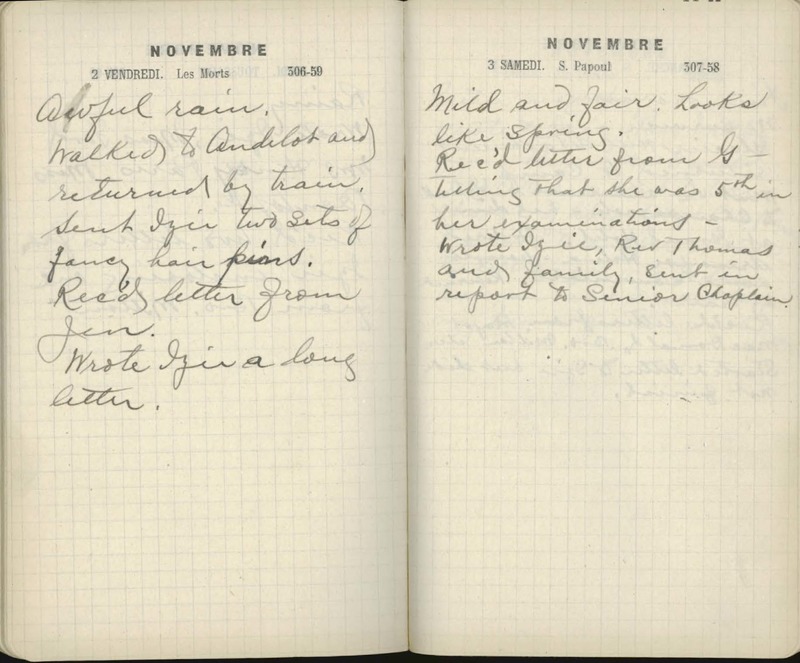 NOVEMBRE
2 VENDREDI. Les Morts 306-59
Awful rain.
Walked to Andelot and
returned by train.
Sent Izie two sets of
fancy hair pins.
Rec'd letter from
Jen.
Wrote Izie a long
letter.
NOVEMBRE
3 SAMEDI. S. Papoul 307-58
Mild and fair. Looks
like spring.
Rec'd letter from G—
telling that she was 5th in
her examinations –
Wrote Izie, Rev Thomas
and family, sent in
report to Senior Chaplain.